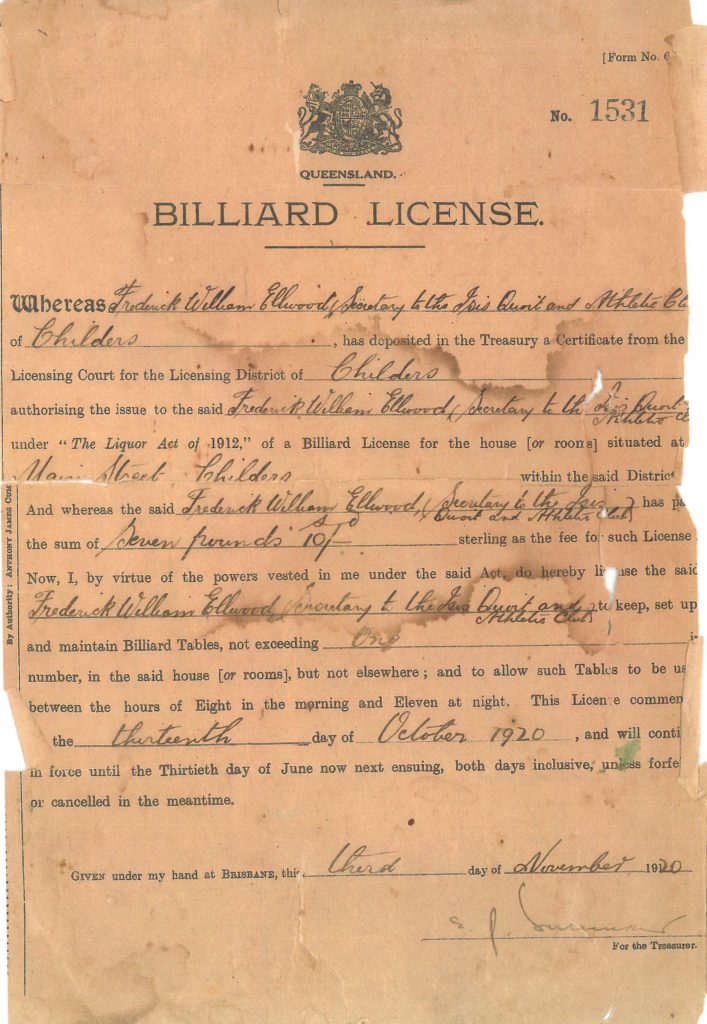 [Form No. 6
No. 1531
QUEENSLAND.
BILLIARD LICENSE.
Whereas Frederick William Ellwood (Secretary to the Isis Quoit and Athletic Cl
of Childers, has deposited in the Treasury a Certificate from the
Licensing Court for the Licensing District of Childers
authorising the issue to the said Frederick William Ellwood (Secretary to the Isis Quoit
Athletic Cl
under "The Liquor Act of 1912," of a Billiard License for the house [or rooms] situated at
Main Street, Childers within the said Distric
And whereas the said Frederick William Ellwood, (Secretary to the Isis has pa
Quoit and Athletic Club)
the sum of Seven pounds 10/- sterling as the fee for such License
Now, I, by virtue of the powers vested in me under the said Act, do hereby license the said
Frederick William Ellwood (Secretary to the Isis Quoit and to keep, set up
Athletic Club)
and maintain Billiard Tables, not exceeding One i
number, in the said house [or rooms], but not elsewhere; and to allow such Tables to be us
between the hours of Eight in the morning and Eleven at night. This License commen
the thirteenth day of October 1920, and will conti
in force until the Thirtieth day of June now next ensuing, both days inclusive, unless forfe
or cancelled in the meantime.
GIVEN under my hand at BRISBANE, this third day of November 1920
For the Treasurer.
By Authority: ANTHONY JAMES CUM